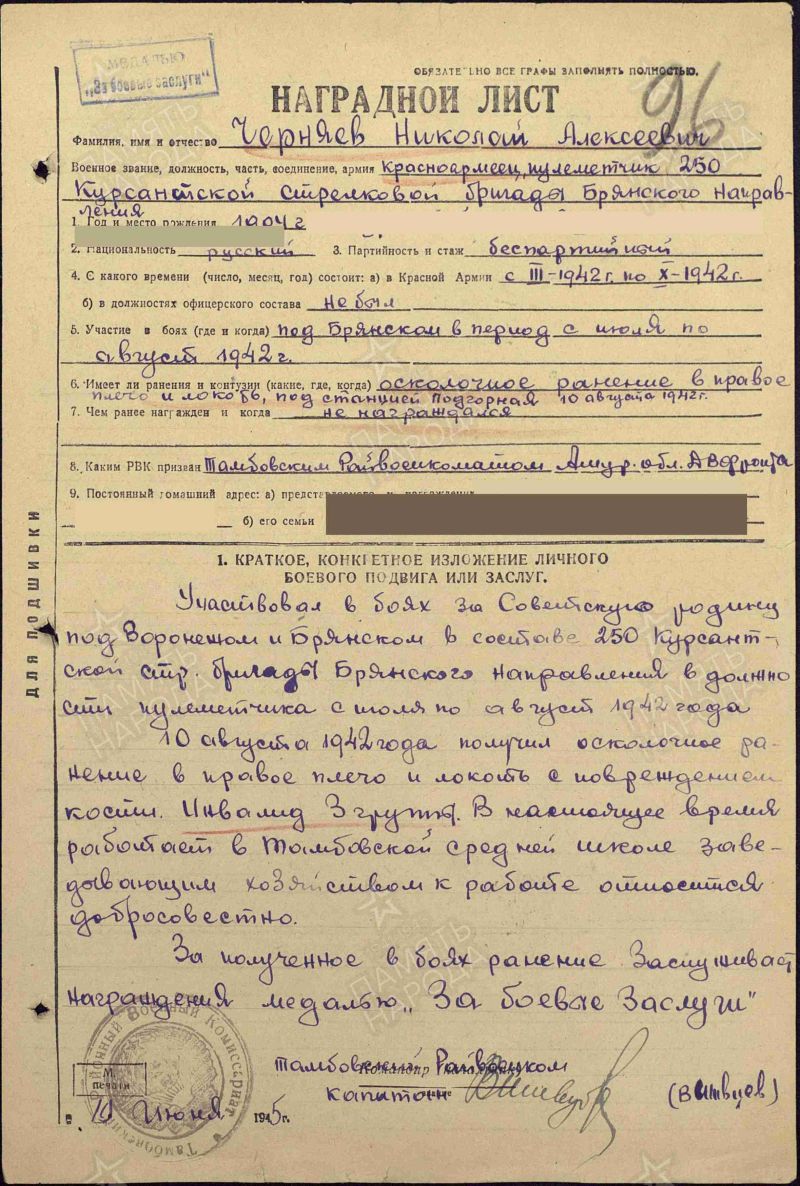 МЕДАЛЬЮ
„За боевые заслуги“
ОБЯЗАТЕЛЬНО ВСЕ ГРАФЫ ЗАПОЛНЯТЬ ПОЛНОСТЬЮ.
96
НАГРАДНОЙ ЛИСТ
Фамилия, имя и отчество Черняев Николай Алексеевич
Военное звание, должность, часть, соединение, армия Красноармеец, пулеметчик 250
Курсантской стрелковой бригады Брянского Направ-
ления
1. Год и место рождения 1904 г
2. Национальность русский 3. Партийность и стаж беспартийный
4. С какого времени (число, месяц, год) состоит: а) в Красной Армии с III-1942г. по X-1942г.
б) в должностях офицерского состава не был
5. Участие в боях (где и когда) под Брянском в период с июля по
август 1942г.
6. Имеет ли ранения и контузии (какие, где, когда) осколочное ранение в правое
плечо и локоть, под станцией Подгорная 10 августа 1942г.
7. Чем ранее награжден и когда не награждался
8. Каким РВК призван Тамбовским Райвоенкоматом Амур. обл. ДВФронта
9. Постоянный домашний адрес: а) представляемого к награждению
б) его семьи
ДЛЯ ПОДШИВКИ
1. КРАТКОЕ, КОНКРЕТНОЕ ИЗЛОЖЕНИЕ ЛИЧНОГО
БОЕВОГО ПОДВИГА ИЛИ ЗАСЛУГ.
Участвовал в боях за Советскую родину
под Воронежом и Брянском в составе 250 Курсант-
ской стр. бригады Брянского направления в должно
сти пулеметчика с июля по август 1942 года
10 августа 1942 года получил осколочное ра-
нение в правое плечо и локоть с повреждением
кости. Инвалид 3 группы. В настоящее время
работает в Тамбовской средней школе заве-
дывающим хозяйством к работе относится
добросовестно.
За полученное в боях ранение заслуживает
награждения медалью „За боевые Заслуги"
Тамбовский Райвоенком
Командир
капитан (Витвцев)
М.
печати
Районный Военный Комиссариат
Тамбовский
"10" июня 1945г.
ПАМЯТЬ
НАРОДА